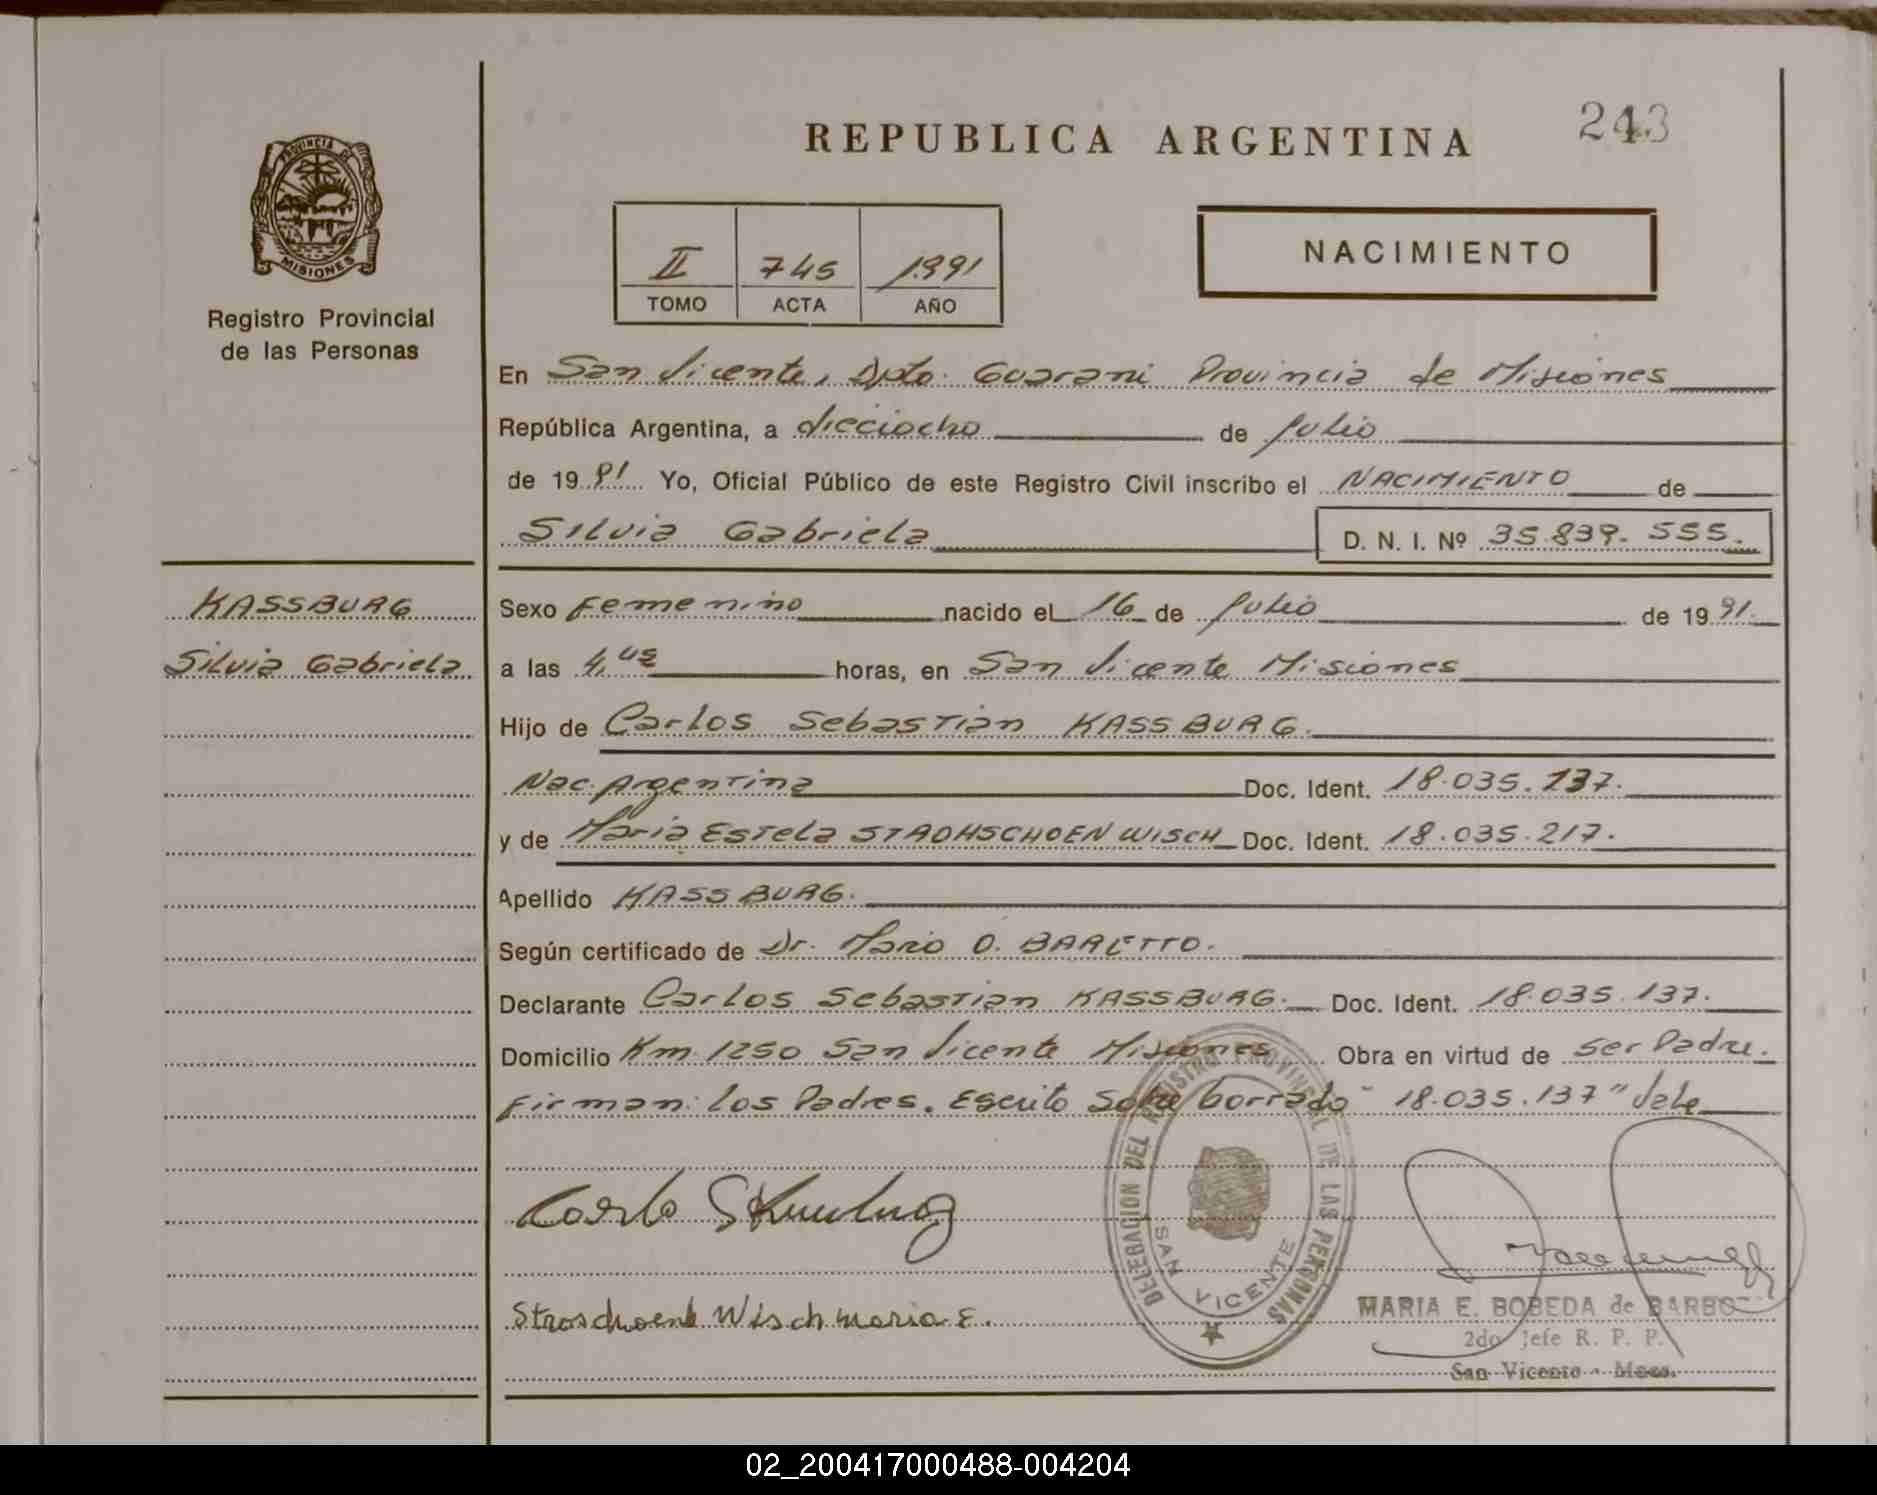 243
REPUBLICA ARGENTINA
PROVINCIA DE
MISIONES
Registro Provincial
de las Personas
II 745 1991
TOMO ACTA AÑO
NACIMIENTO
En San Vicente, Dpto. Guarani Provincia de Misiones
República Argentina, a dieciocho de Julio
de 1991 Yo, Oficial Público de este Registro Civil inscribo el NACIMIENTO de
Silvia Gabriela D. N. I. Nº 35.839.555.
KASSBURG
Silvia Gabriela
Sexo Femenino nacido el 16 de Julio de 1991.
a las 4,45 horas, en San Vicente Misiones
Hijo de Carlos Sebastian KASSBURG.
Nac. Argentina Doc. Ident. 18.035.137.
y de Maria Estela STROHSCHOEN WISCH Doc. Ident. 18.035.217.
Apellido KASSBURG.
Según certificado de Dr. Mario O. BARETTO.
Declarante Carlos Sebastian KASSBURG. Doc. Ident. 18.035.137.
Domicilio Km 1250 San Vicente Misiones Obra en virtud de ser Padre.
Firman: los Padres. Escrito Sobre borrado "18.035.137" Vale
DELEGACION DEL REGISTRO PROVINCIAL DE LAS PERSONAS
SAN VICENTE
Stroschoen Wisch maria E.
MARIA E. BOBEDA de BARBO
2do Jefe R. P. P.
San Vicente - Mnes.
02_200417000488-004204